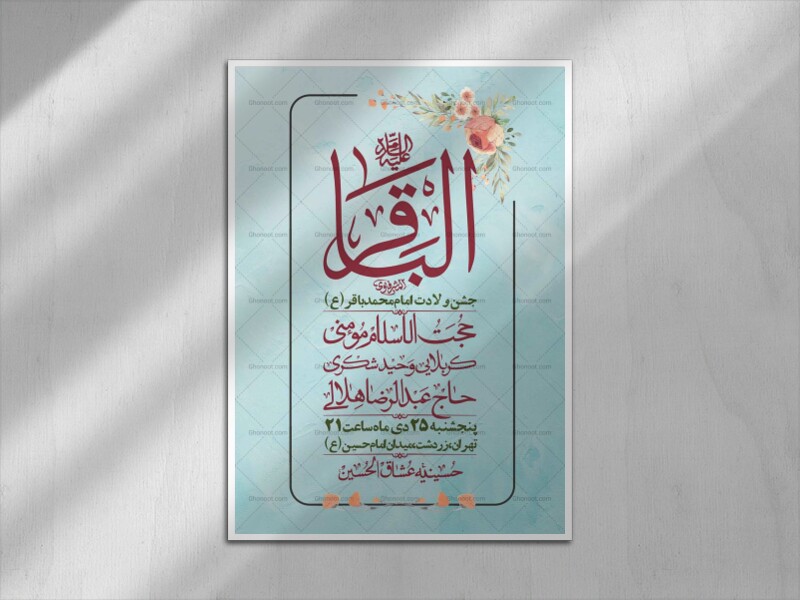 علیه السلام
الباقر
جشن ولادت امام محمد باقر (ع)
حجت الاسلام مومنی
کربلایی وحید شکری
حاج عبدالرضا هلالی
پنجشنبه ۲۵ دی ماه ساعت ۲۱
تهران، زردشت، میدان امام حسین (ع)
حسینیه عشاق الحسین
Ghonoot.com